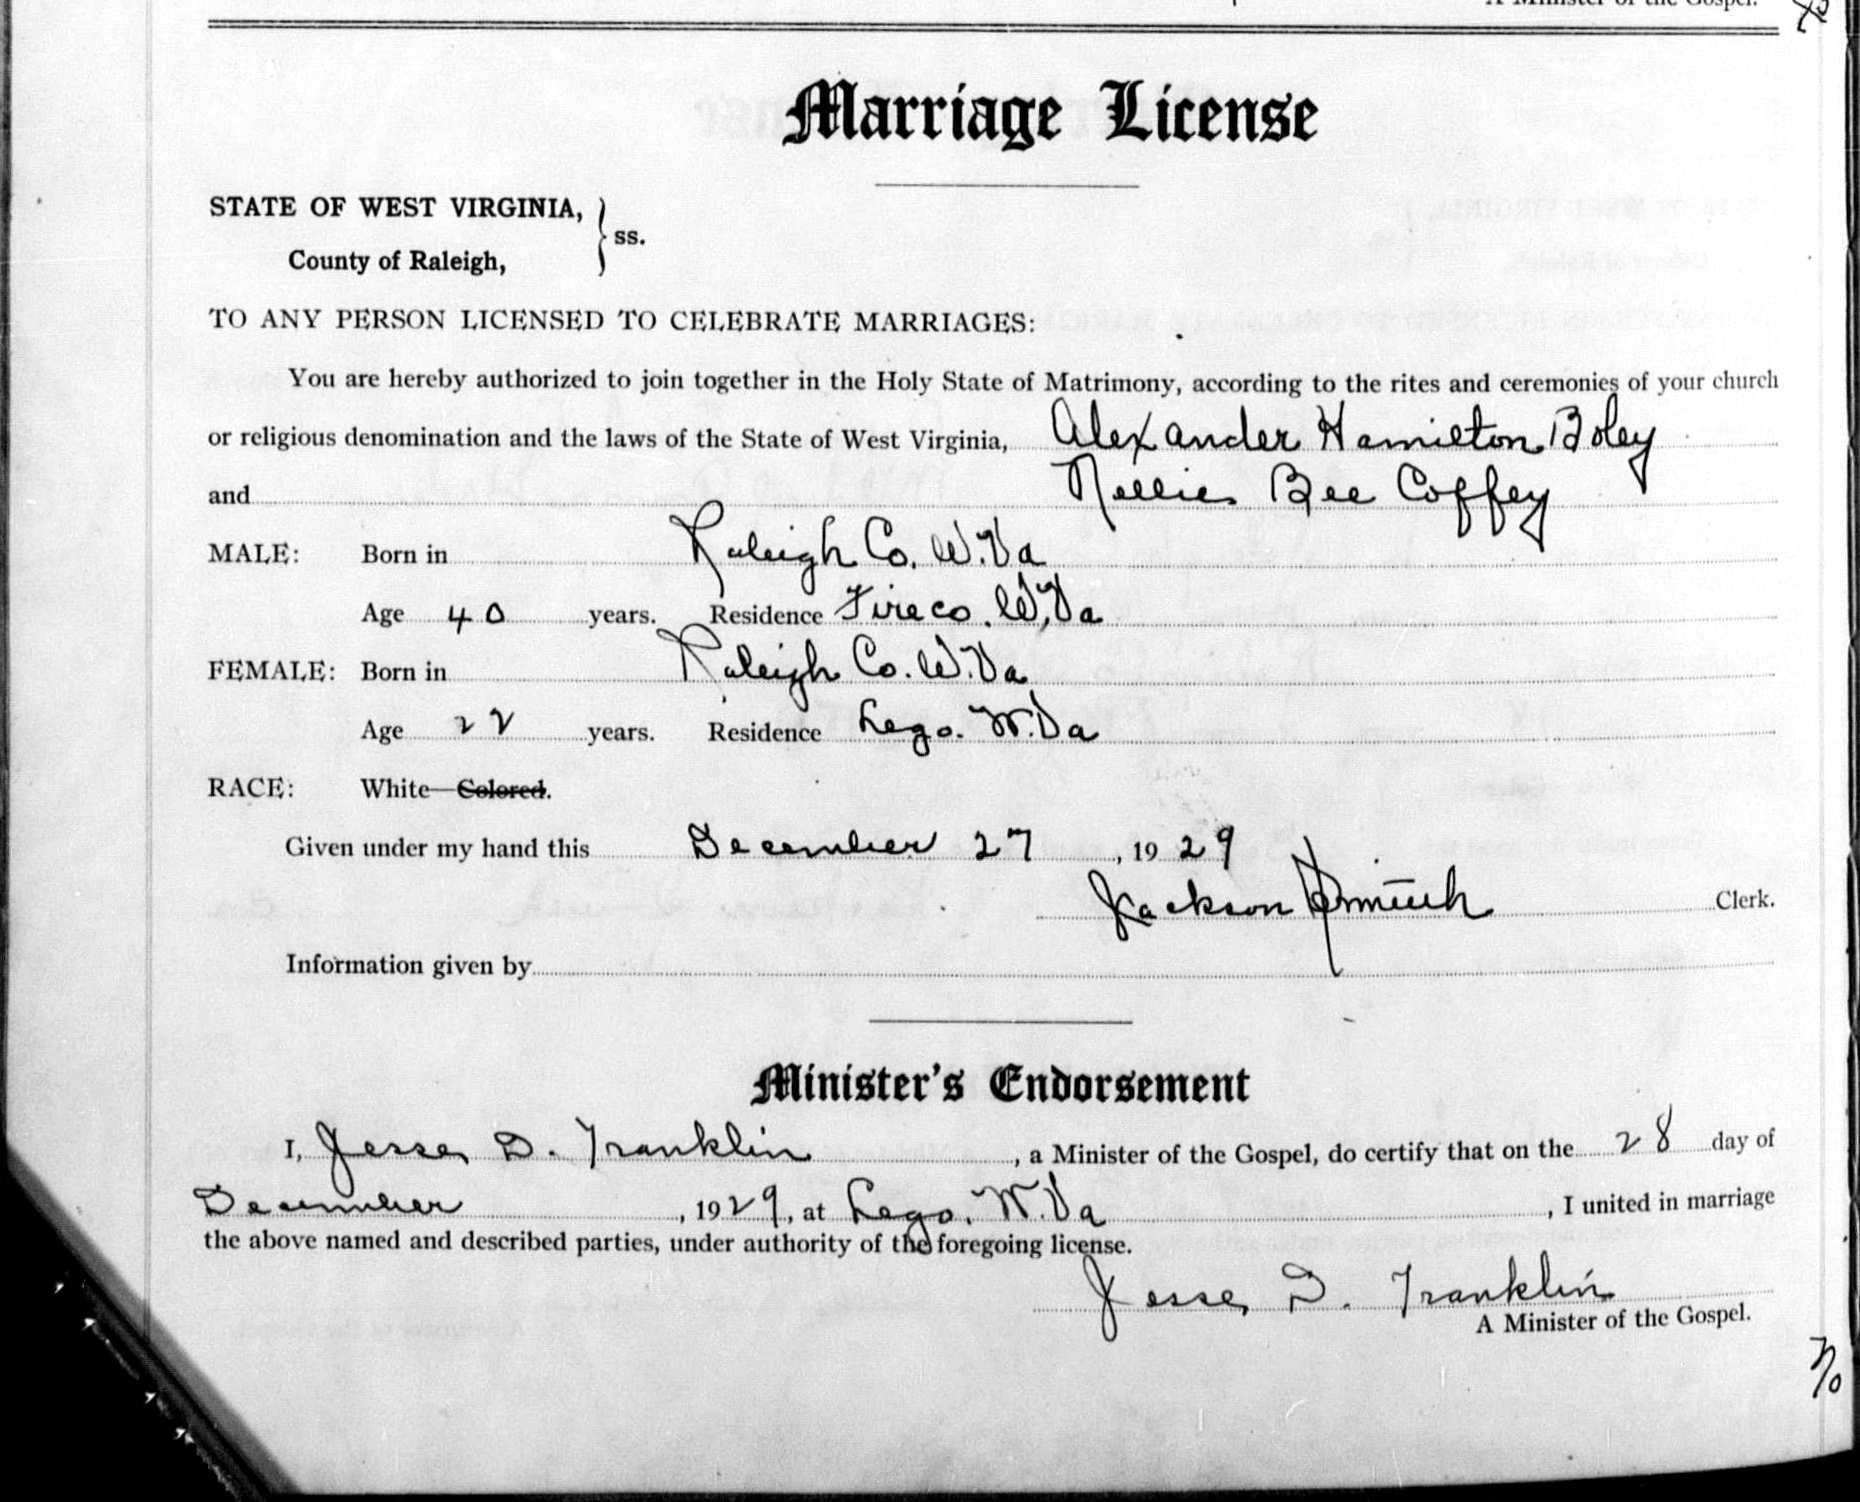 A Minister of the Gospel.
Marriage License
STATE OF WEST VIRGINIA, } ss.
County of Raleigh,
TO ANY PERSON LICENSED TO CELEBRATE MARRIAGES:
You are hereby authorized to join together in the Holy State of Matrimony, according to the rites and ceremonies of your church
or religious denomination and the laws of the State of West Virginia, Alexander Hamilton Boley
and Nellie Bee Coffey
MALE: Born in Raleigh Co. W.Va
Age 40 years. Residence Fireco. W.Va
FEMALE: Born in Raleigh Co. W.Va
Age 22 years. Residence Lego. W.Va
RACE: White—Colored.
Given under my hand this December 27, 1929
Jackson Smith Clerk.
Information given by
Minister's Endorsement
I, Jesse D. Franklin, a Minister of the Gospel, do certify that on the 28 day of
December, 1929, at Lego. W.Va, I united in marriage
the above named and described parties, under authority of the foregoing license.
Jesse D. Franklin
A Minister of the Gospel.